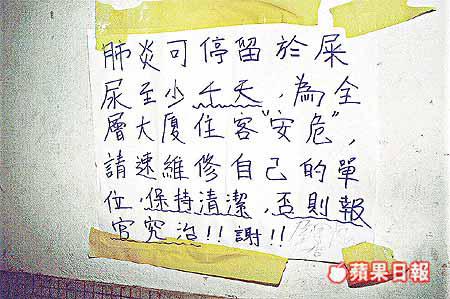 肺炎可停留於屎
尿至少千天，為全
層大厦住客"安危"，
請速維修自己的單
位，保持清潔，否則報
官究治！！謝！！
蘋果日報